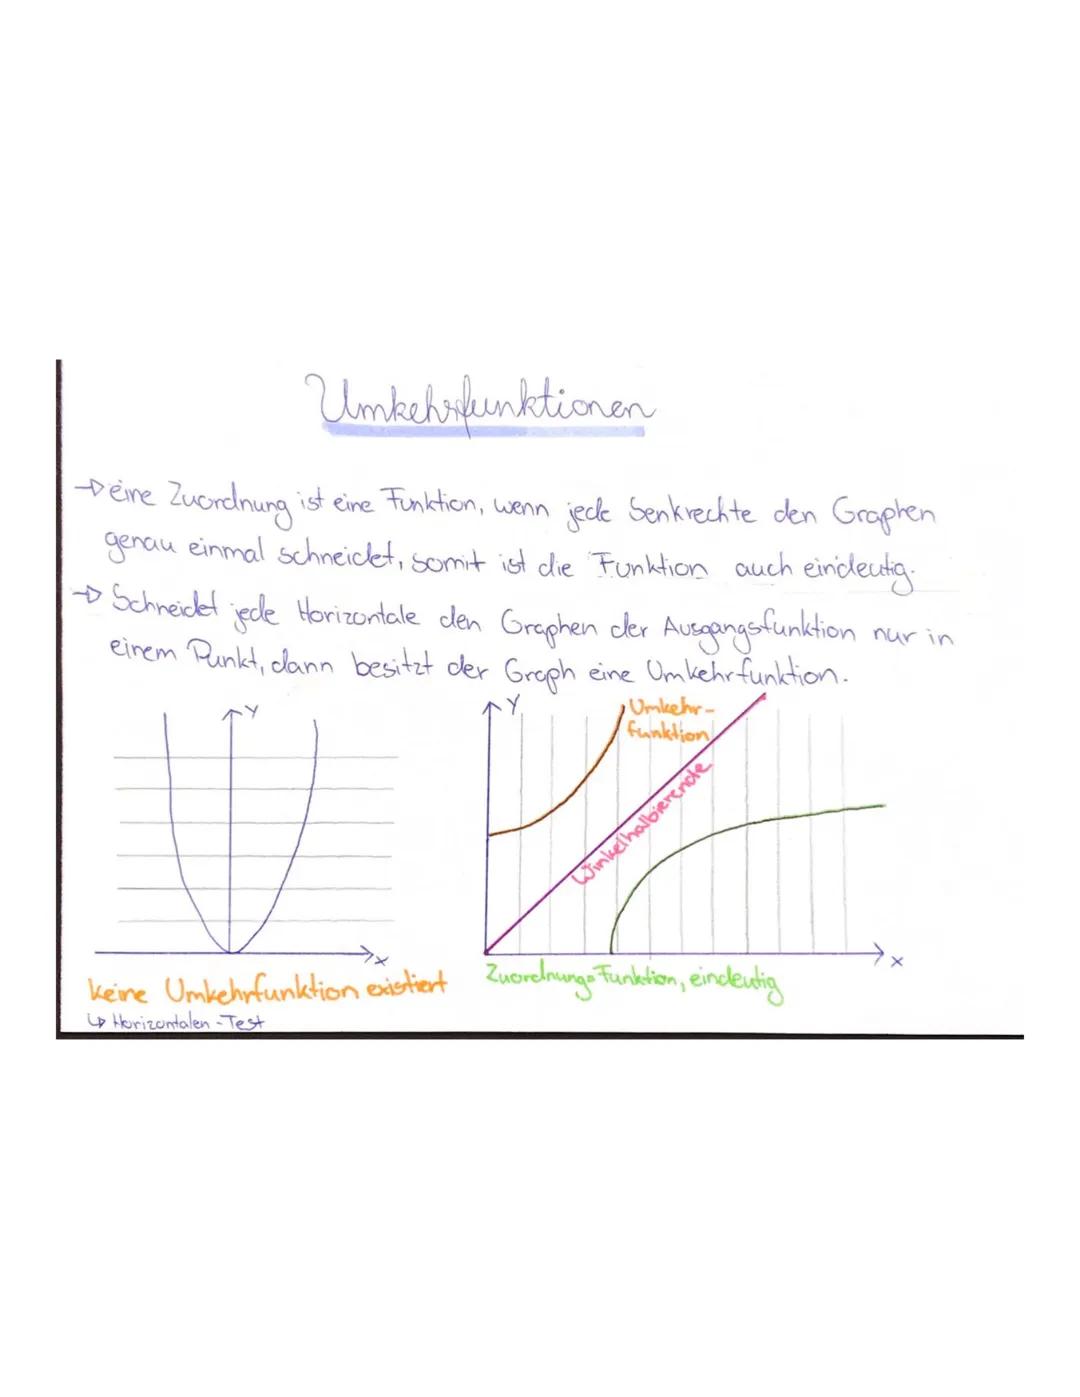 Umkehrfunktionen
→ eine Zuordnung ist eine Funktion, wenn jede Senkrechte den Graphen
genau einmal schneidet, somit ist die Funktion auch eindeutig.
→ Schneidet jede Horizontale den Graphen der Ausgangsfunktion nur in
einem Punkt, dann besitzt der Graph eine Umkehrfunktion.
y
x
keine Umkehrfunktion existiert
↳ Horizontalen-Test
y
Umkehr-
funktion
Winkelhalbierende
x
Zuordnung=Funktion, eindeutig